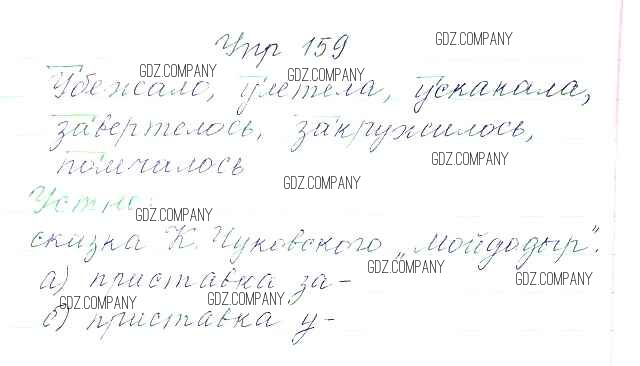 Упр 159
Убежало, улетела, ускакала,
завертелось, закружилось,
помчалось
Устно:
сказка К. Чуковского „Мойдодыр".
а) приставка за-
б) приставка у-
GDZ.COMPANY
GDZ.COMPANY
GDZ.COMPANY
GDZ.COMPANY
GDZ.COMPANY
GDZ.COMPANY
GDZ.COMPANY
GDZ.COMPANY
GDZ.COMPANY
GDZ.COMPANY
GDZ.COMPANY